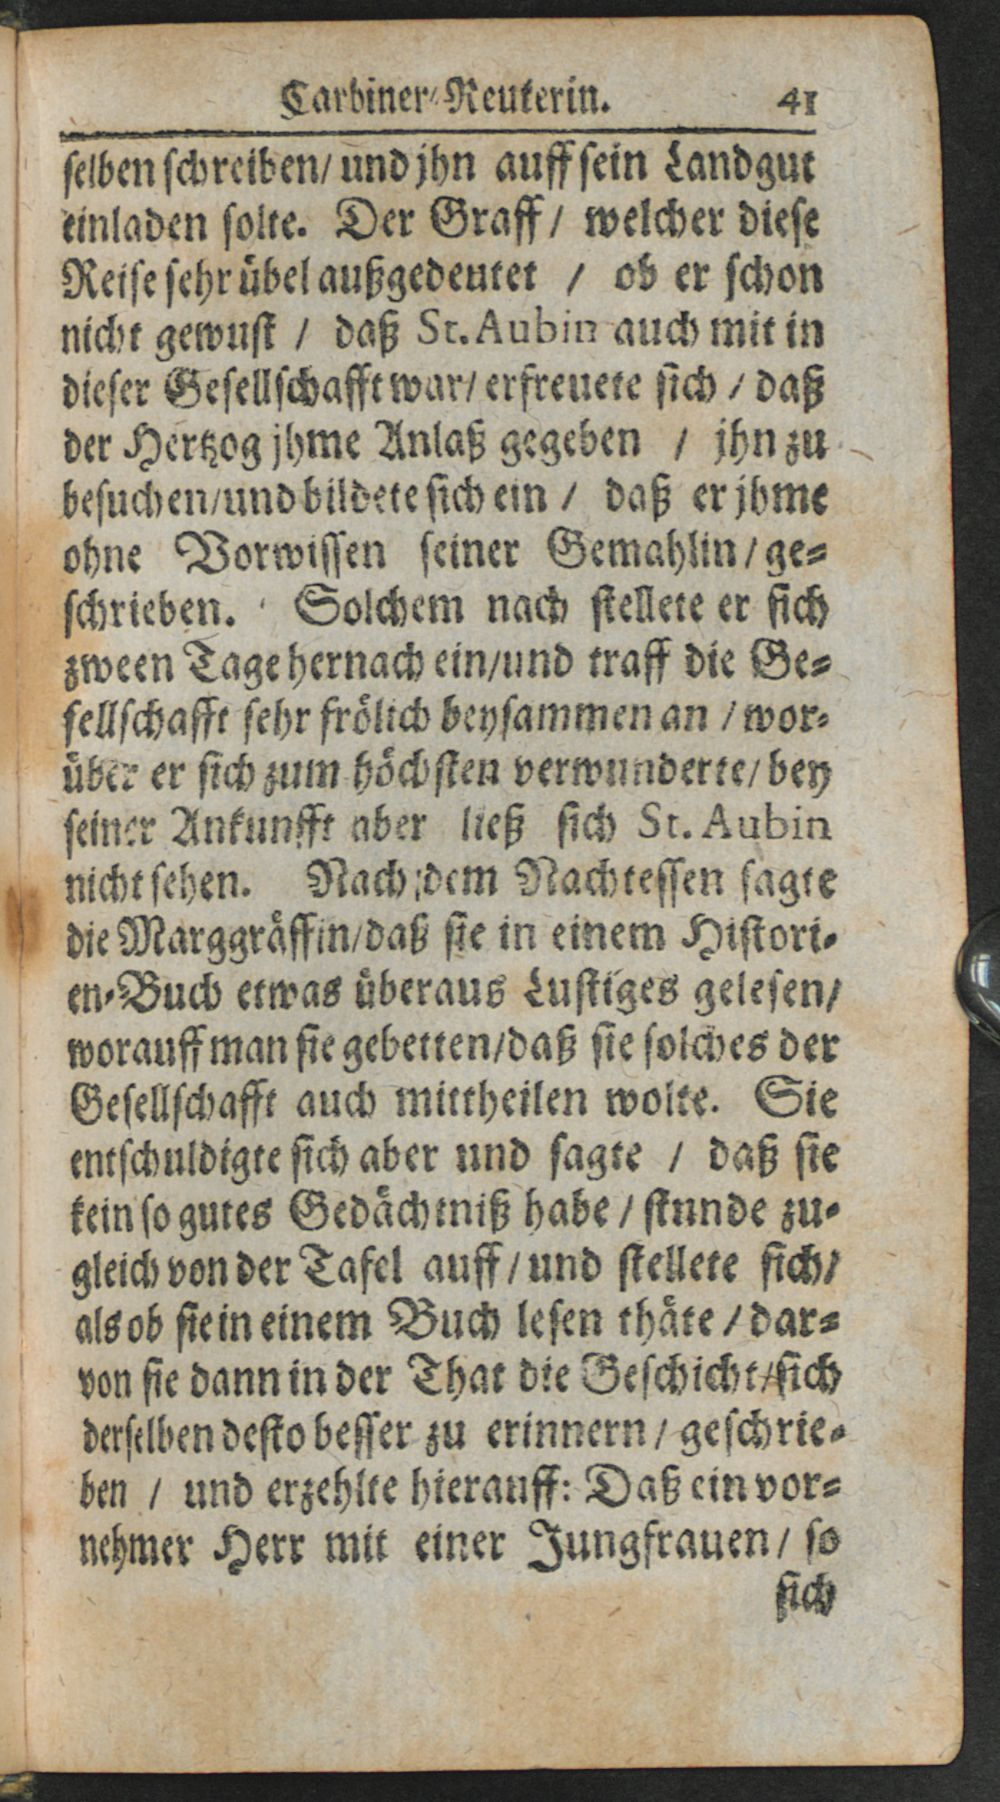 Carbiner-Reuterin. 41
selben schreiben/ und jhn auff sein Landgut
einladen solte. Der Graff / welcher diese
Reise sehr übel außgedeutet / ob er schon
nicht gewust / daß St. Aubin auch mit in
dieser Gesellschafft war/ erfreuete sich / daß
der Hertzog jhme Anlaß gegeben / jhn zu
besuchen/und bildete sich ein / daß er jhme
ohne Vorwissen seiner Gemahlin / ge-
schrieben. Solchem nach stellete er sich
zween Tage hernach ein/und traff die Ge-
sellschafft sehr frölich beysammen an / wor-
über er sich zum höchsten verwunderte/ bey
seiner Ankunfft aber ließ sich St. Aubin
nicht sehen. Nach dem Nachtessen sagte
die Marggräffin/daß sie in einem Histori-
en-Buch etwas überaus Lustiges gelesen/
worauff man sie gebetten/daß sie solches der
Gesellschafft auch mittheilen wolte. Sie
entschuldigte sich aber und sagte / daß sie
kein so gutes Gedächtniß habe / stunde zu-
gleich von der Tafel auff / und stellete sich/
als ob sie in einem Buch lesen thäte / dar-
von sie dann in der That die Geschicht/sich
derselben desto besser zu erinnern / geschrie-
ben / und erzehlte hierauff: Daß ein vor-
nehmer Herr mit einer Jungfrauen / so
sich